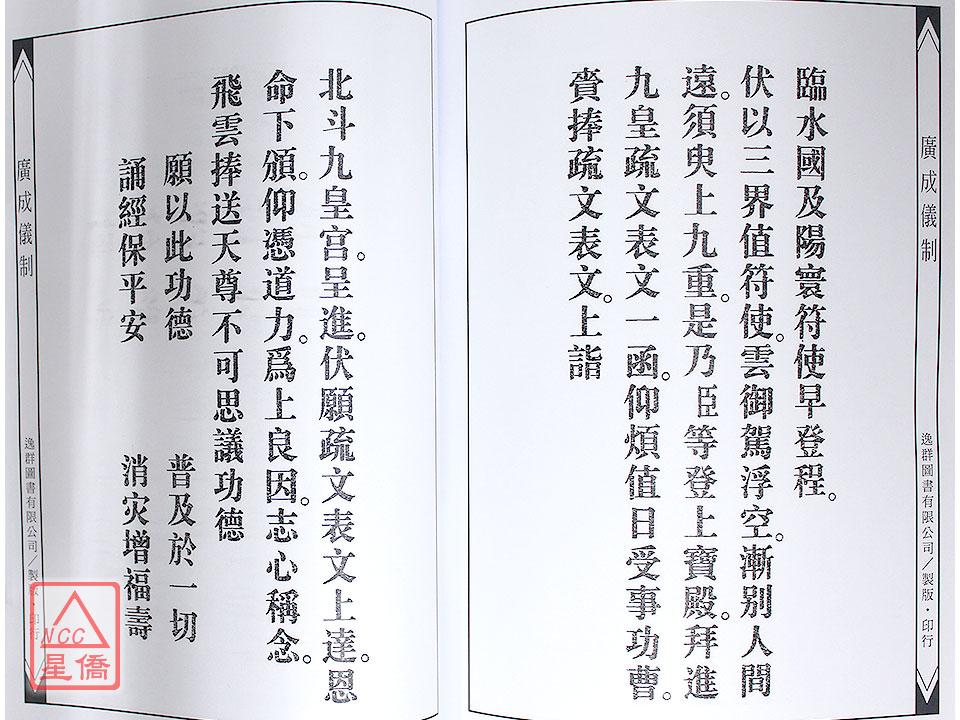 廣成儀制
逸群圖書有限公司／製版・印行
臨水國及陽寰符使早登程。
伏以三界值符使。雲御駕浮空。漸别人間
遠。須臾上九重。是乃臣等登上寶殿。拜進
九皇疏文表文一函。仰煩值日受事功曹。
賫捧疏文表文。上詣
北斗九皇宫。呈進。伏願疏文表文上達。恩
命下頒。仰憑道力。爲上良因。志心稱念。
飛雲捧送天尊不可思議功德
願以此功德　普及於一切
誦經保平安　消灾增福壽
廣成儀制
逸群圖書有限公司／製版・印行
NCC
星僑